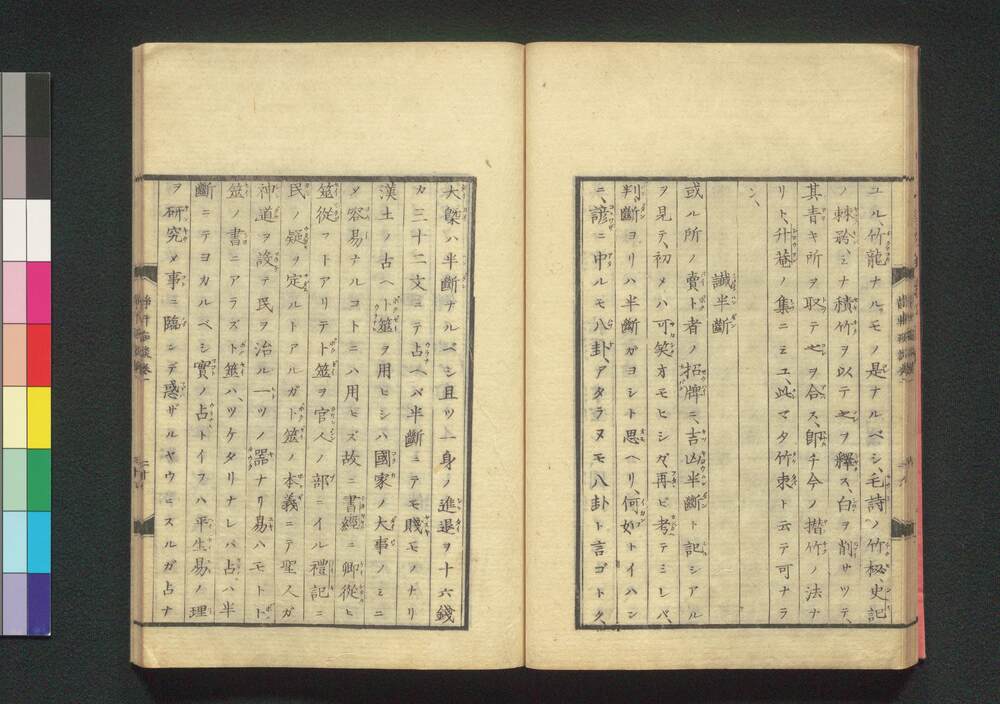 ユル竹龍ナルモノ是ナルベシ、毛詩ノ竹柲、史記
ノ棘矜ミナ積竹ヲ以テ之ヲ釋ス、白ヲ削サツテ、
其青キ所ヲ取テ之ヲ合ス、即チ今ノ揩竹ノ法ナ
リト、升菴ノ集ニミユ、此マタ竹隶ト云テ可ナラ
ン、
誡半斷
或ル所ノ賣卜者ノ招牌ニ、吉凶半斷ト記シアル
ヲ見テ、初メハ可笑オモヒシガ、再ビ考テミレバ、
判斷ヨリハ半斷ガヨシト思ヘリ、何如トイハン
ニ、諺ニ中ルモ八卦、アタラヌモ八卦ト言ゴトク、
大槩ハ半斷ナルベシ且ツ一身ノ進退ヲ十六錢
カ三十二文ミテ占ヘバ半斷ニテモ賤モノナリ
漢土ノ古ヘト筮ヲ用ヒシハ國家ノ大事ノミニ
メ容易ナルコトニハ用ヒズ故ニ書經ニ卿從ヒ
筮從フトアリテト筮ヲ官人ノ部ニイル禮記ニ
民ノ疑ヲ定ルトアルガト筮ノ本義ニテ聖人ガ
神道ヲ設テ民ヲ治ル一ツノ器ナリ易ハモトト
筮ノ書ニアラズト筮ハ、ツケタリナレバ占ハ半
斷ニテヨカルベシ實ノ占トイフハ平生易ノ理
ヲ研究メ事ニ臨ンデ惑ザルヤウニスルガ占ナ